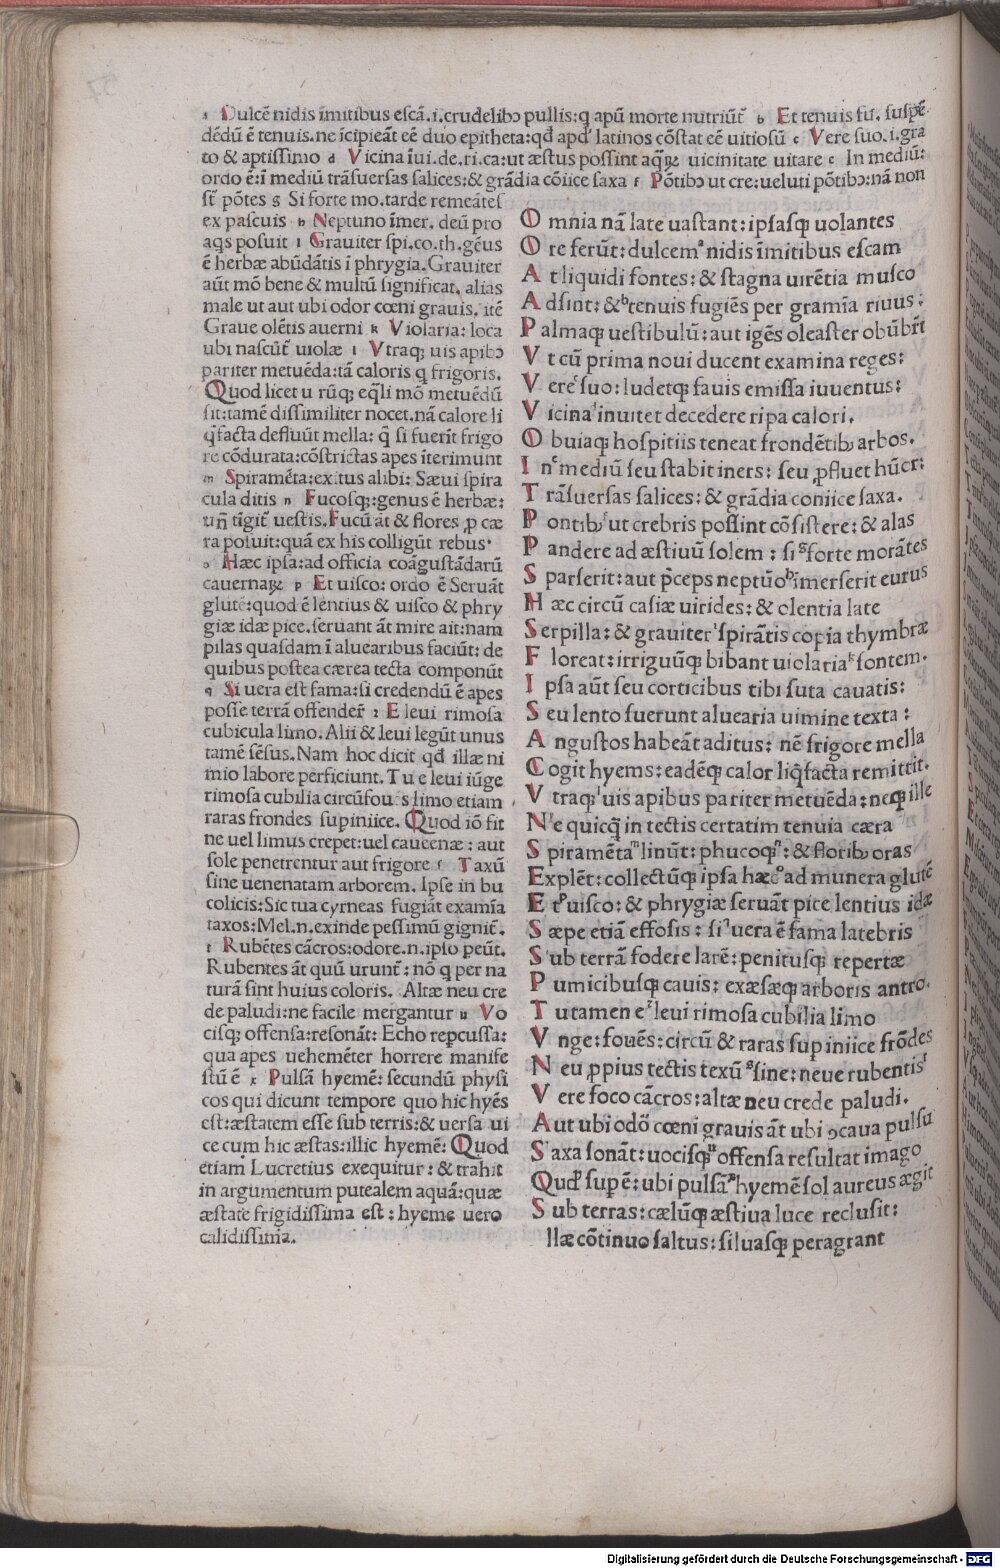 a Dulcē nidis īmitibus escā.i.crudelibꝰ pullis:q apū morte nutriūt̄ b Et tenuis fu. suspē
dēdū ē tenuis.ne īcipieāt eē duo epitheta:qd̄ apd̓ latinos cōstat eē uitiosū c Vere suo.i.gra
to & aptissimo d Vicina īui.de.ri.ca:ut æstus possint aq̄ꝝ uicinitate uitare e In mediū:
ordo ē:ī mediū trāsuersas salices:& grādia cōiice saxa f Pōtibꝰ ut cre:ueluti pōtibꝰ:nā non
st̄ pōtes g Si forte mo.tarde remeātes
ex pascuis h Neptuno īmer. deū pro
aqs posuit i Grauiter spi.co.th.gēus
ē herbæ abūdātis ī phrygia.Grauiter
aūt mō bene & multū significat. alias
male ut aut ubi odor cœni grauis. itē
Graue olētis auerni k Violaria: loca
ubi nascūt̄ uiolæ l Vtraq; uis apibꝰ
pariter metuēda:tā caloris q̄ frigoris.
Quod licet u rūq; eq̄li mō metuēdū
sit:tamē dissimiliter nocet.nā calore li
q̄facta defluūt mella: q̄ si fuerīt frigo
re cōdurata:cōstrictas apes īterimunt
m Spiramēta:exitus alibi: Sæui spira
cula ditis n Fucosq;:genus ē herbæ:
un̄ tīgit̄ uestis.Fucū āt & flores ꝓ cæ
ra posuit:quā ex his colligūt rebus.
o Hæc ipsa:ad officia coāgustādarū
cauernaꝝ p Et uisco: ordo ē Seruāt
glutē:quod ē lentius & uisco & phry
giæ idæ pice.seruant āt mire ait:nam
pilas quasdam ī aluearibus faciūt: de
quibus postea cærea tecta componūt
q Si uera est fama:si credendū ē apes
posse terrā offender̄ r E leui rimosa
cubicula limo.Alii & leui legūt unus
tamē sēsus.Nam hoc dicit qd̄ illæ ni
mio labore perficiunt.Tu e leui iūge
rimosa cubilia circūfou s limo etiam
raras frondes supiniice. Quod iō fit
ne uel limus crepet:uel cauernæ: aut
sole penetrentur aut frigore s Taxū
sine uenenatam arborem. Ipse in bu
colicis:Sic tua cyrneas fugiāt examīa
taxos:Mel.n.exinde pessimū gignit̄.
t Rubētes cācros:odore.n.ipso peūt.
Rubentes āt quū urunt̄: nō q per na
turā sint huius coloris. Altæ neu cre
de paludi:ne facile mergantur u Vo
cisq; offensa:resonāt: Echo repcussa:
qua apes uehemēter horrere manife
stū ē x Pulsā hyemē: secundū physi
cos qui dicunt tempore quo hic hyēs
est:æstatem esse sub terris:& uersa ui
ce cum hic æstas:illic hyemē: Quod
etiam Lucretius exequitur: & trahit
in argumentum putealem aquā:quæ
æstate frigidissima est : hyeme uero
calidissima.
O mnia nā late uastant: ipsasq; uolantes
O re ferūt: dulcemᵃ nidis īmitibus escam
A t liquidi fontes: & stagna uirētia musco
A dsint: &ᵇ tenuis fugiēs per gramīa riuus:
P almaq; uestibulū: aut īgēs oleaster obūbr̄t
V t cū prima noui ducent examina reges:
V ereᶜ suo: ludetq; fauis emissa iuuentus:
V icinaᵈ inuitet decedere ripa calori.
O buiaq; hospitiis teneat frondētibꝰ arbos.
I nᵉ mediū seu stabit iners: seu ꝓfluet hūcr:
T rāsuersas salices: & grādia coniice saxa.
P ontibꝰᶠ ut crebris possint cōsistere: & alas
P andere ad æstiuū solem : siᵍ forte morātes
S parserit: aut p̄ceps neptūoʰ īmerserit eurus
H æc circū casiæ uirides: & olentia late
S erpilla: & grauiterⁱ spirātis copīa thymbræ
F loreat: irriguūq; bibant uiolariaᵏ fontem.
I psa aūt seu corticibus tibi suta cauatis:
S eu lento fuerunt aluearia uimine texta :
A ngustos habeāt aditus: nē frigore mella
C ogit hyems: eadēq; calor liq̄facta remittit.
V traq;ˡ uis apibus pariter metuēda: neq; ille
N e quicq̄ in tectis certatim tenuia cæra
S piramētaᵐ linūt: phucoq;ⁿ: & floribꝰ oras
E xplēt: collectūq; ipsa hæcᵒ ad munera glutē
E tᵖ uisco: & phrygiæ seruāt pice lentius idæ
S æpe etiā effosis : siᑫ uera ē fama latebris
S ub terrā fodere larē: penitusq; repertæ
P umicibusq; cauis: exæsæq; arboris antro.
T u tamen eʳ leui rimosa cubilia limo
V nge: fouēs: circū & raras sup iniice frōdes
N eu ꝓpius tectis texūˢ sine: neue rubentisᵗ
V ere foco cācros: altæ neu crede paludi.
A ut ubi odō cœni grauis āt ubi ꝯcaua pulsu
S axa sonāt: uocisq;ᵘ offensa resultat imago
Q ud̓ supē: ubi pulsāˣ hyemē sol aureus ægit
S ub terras: cælūq; æstiua luce reclusit:
llæ cōtinuo saltus: siluasq; peragrant
Digitalisierung gefördert durch die Deutsche Forschungsgemeinschaft - DFG